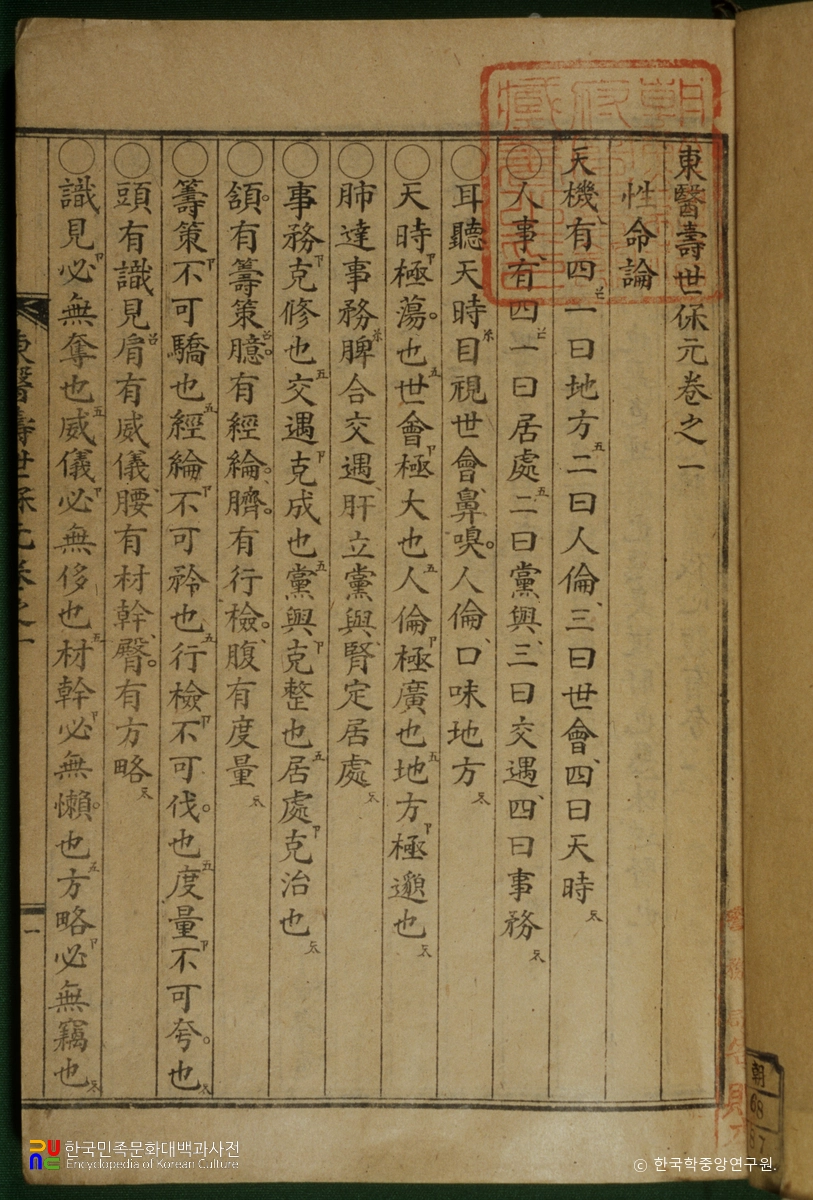 東醫壽世保元卷之一
性命論
天機有四一曰地方二曰人倫三曰世會四曰天時
○人事有四一曰居處二曰黨與三曰交遇四曰事務
○耳聽天時目視世會鼻嗅人倫口味地方
○天時極蕩也世會極大也人倫極廣也地方極邈也
○肺達事務脾合交遇肝立黨與腎定居處
○事務克修也交遇克成也黨與克整也居處克治也
○頷有籌策臆有經綸臍有行檢腹有度量
○籌策不可驕也經綸不可矜也行檢不可伐也度量不可夸也
○頭有識見肩有威儀腰有材幹臀有方略
○識見必無奪也威儀必無侈也材幹必無懶也方略必無竊也
東醫壽世保元卷之一
一
朝
68
67
한국민족문화대백과사전
Encyclopedia of Korean Culture
© 한국학중앙연구원.